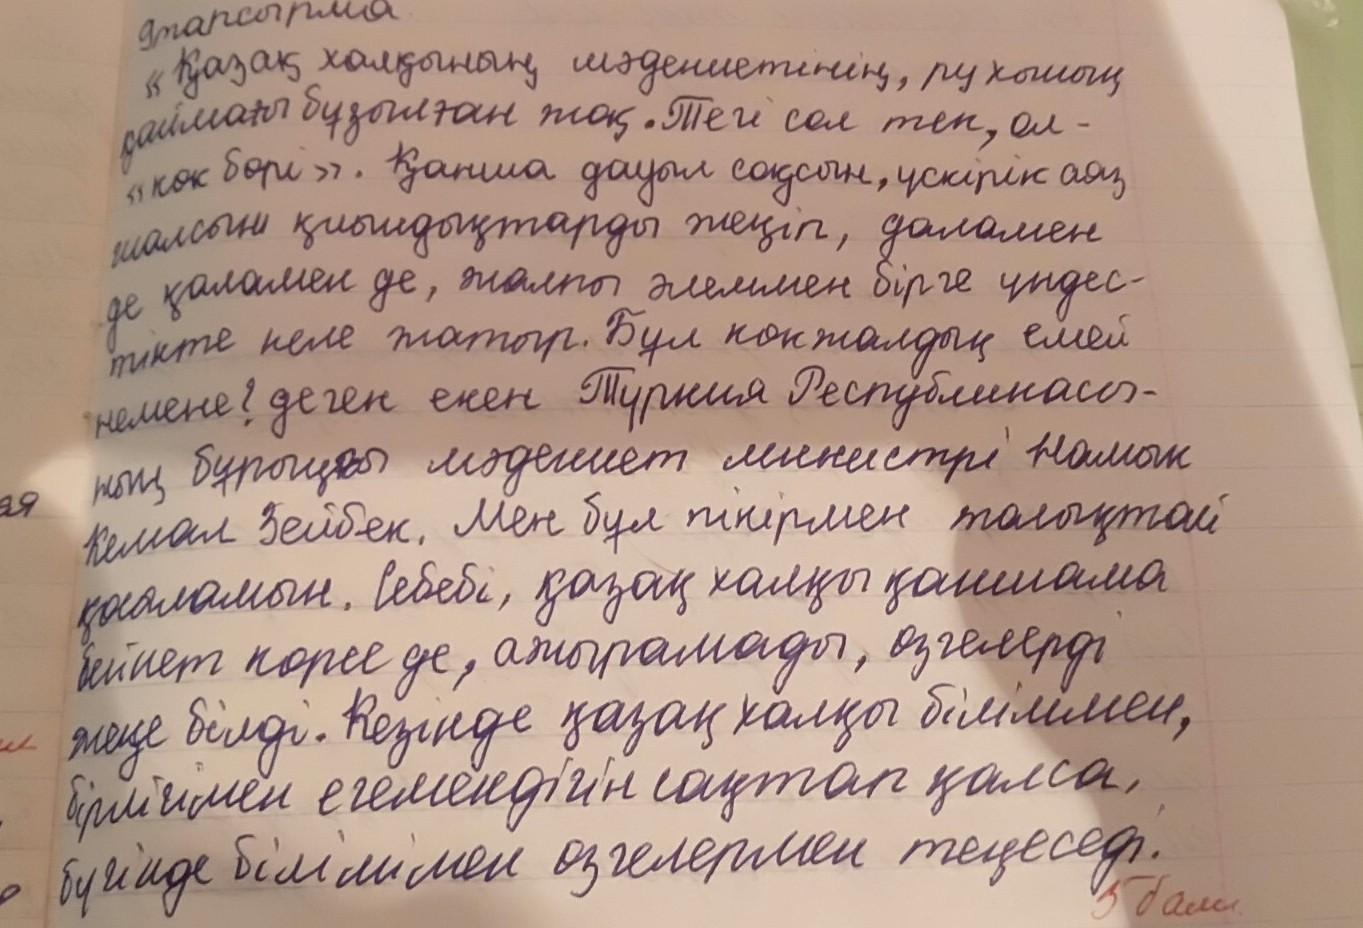 9тапсырма
"Қазақ халқының мәдениетінің, рухының
қаймағы бұзылған жоқ. Тегі сол тек, ол -
"көк бөрі". Қанша дауыл соқсын, үскірік аяз
шалсын қиындықтарды жеңіп, даламен
де қаламен де, жалпы әлеммен бірге үндес-
тікте келе жатыр. Бұл көкжалдық емей
немене? деген екен Түркия Республикасы-
ның бұрынғы мәдениет министрі Намык
ая
Кемал Зейбек. Мен бұл пікірмен толықтай
қосыламын. Себебі, қазақ халқы қаншама
бейнет көрсе де, ажырамады, өзгелерді
жеңе білді. Кезінде қазақ халқы білімімен,
бірлігімен егемендігін сақтап қалса,
бүгінде білімімен өзгелермен теңеседі.
5 балл